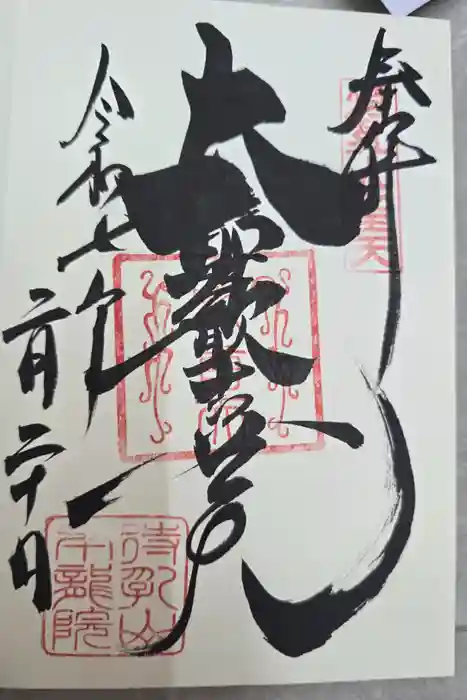 奉拝
大聖歓喜天
令和七年
二月二十日
待乳山
本龍院